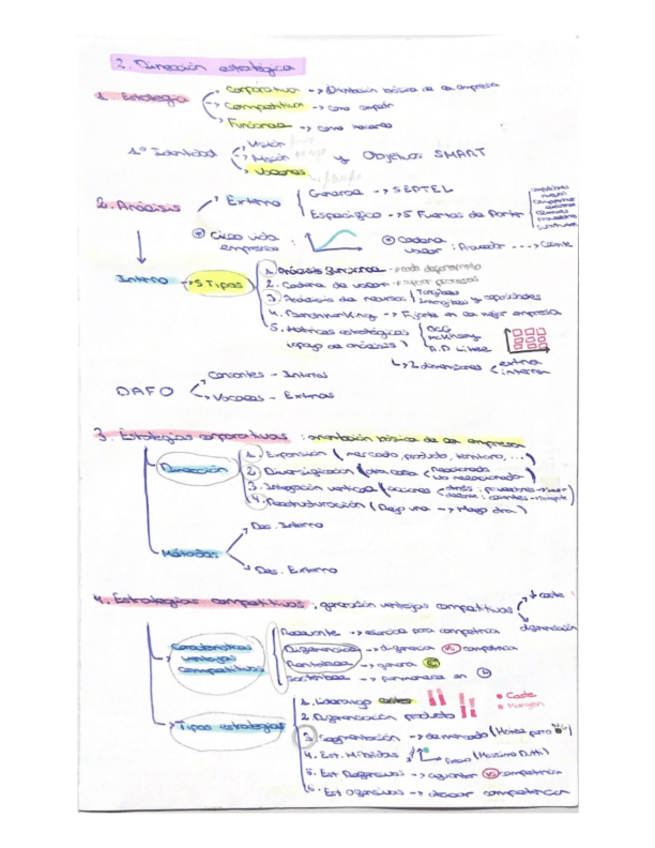 2. Dirección estratégica
1. Estrategia
Corporativa -> Orientación básica de la empresa
Competitiva -> como competir
Funcional -> como hacerlo
1º Identidad
Visión
Misión
Valores
y Objetivos SMART
2. Análisis
Externo
General -> SEPTEL
Específico -> 5 Fuerzas de Porter
Ciclo vida empresa :
Cadena valor : Proveedor ----> Cliente
Interno -> 5 Tipos
1. Análisis funcional -> cada departamento
2. Cadena de valor ->
3. Análisis de recursos
Tangibles
Intangibles y capacidades
4. Benchmarking -> Fijarte en la mejor empresa
5. Matrices estratégicas
(apoyo de análisis)
BCG
McKinsey
A.D Little
-> 2 dimensiones
externa
interna
DAFO
- Internas
- Externas
3. Estrategias corporativas : orientación básica de la empresa
Dirección
1. Expansión (mercado, producto, territorio, ...)
2. Diversificación (otra cosa
Relacionada
No relacionada)
3. Integración vertical (acciones
atrás : proveedores
delante : clientes
4. Reestructuración (Dejo una -> Hago otra)
Métodos
Des. Interno
Des. Externo
4. Estrategias competitivas : generación ventajas competitivas
↓ coste
diferenciación
Características ventajas competitivas
Relevante -> esencial para competencia
Diferencial -> diferencia VS competencia
Rentable -> genera €
Sostenible -> permanezca en
Tipos estrategias
1. Liderazgo costes
• Coste
• Margen
2. Diferenciación producto
3. Segmentación -> de mercado
4. Est. Híbridas
Precio
5. Est Defensivas -> aguantar VS competencia
6. Est Ofensivas -> atacar competencia